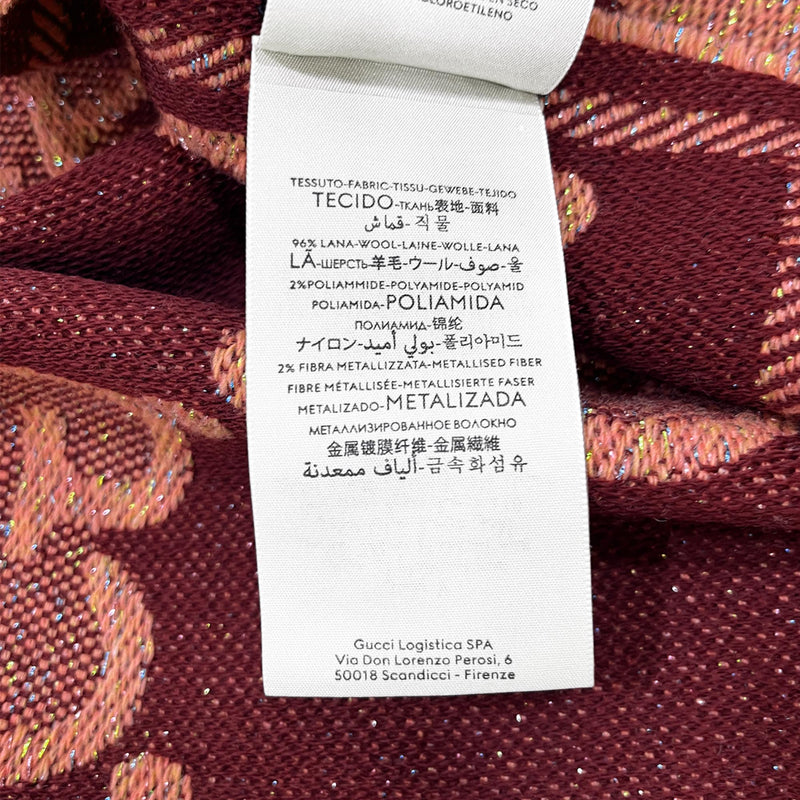 EN SECO
CLOROETILENO
TESSUTO-FABRIC-TISSU-GEWEBE-TEJIDO
TECIDO-ТКАНЬ表地-面料
قماش-직물
96% LANA-WOOL-LAINE-WOLLE-LANA
LÃ-ШЕРСТЬ羊毛-ウール-صوف-울
2%POLIAMMIDE-POLYAMIDE-POLYAMID
POLIAMIDA-POLIAMIDA
ПОЛИАМИД-锦纶
ナイロン-بولي أميد-폴리아미드
2% FIBRA METALLIZZATA-METALLISED FIBER
FIBRE MÉTALLISÉE-METALLISIERTE FASER
METALIZADO-METALIZADA
МЕТАЛЛИЗИРОВАННОЕ ВОЛОКНО
金属镀膜纤维-金属繊維
ألياف ممعدنة-금속화섬유
Gucci Logistica SPA
Via Don Lorenzo Perosi, 6
50018 Scandicci - Firenze